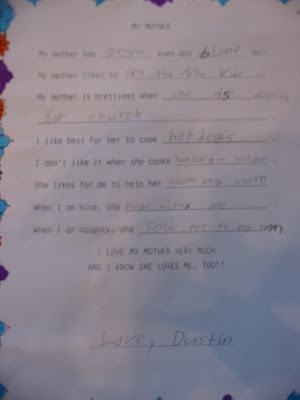 MY MOTHER
My mother has green eyes and blond hair
My mother likes to see the New Kids
My mother is prettiest when she is dressed
for church.
I like best for her to cook hotdogs.
I don't like it when she cooks
She likes for me to help her clean my room.
When I am nice, she plays with me.
When I am naughty, she sends me to my room.
I LOVE MY MOTHER VERY MUCH
AND I KNOW SHE LOVES ME, TOO!!
Love, Dustin